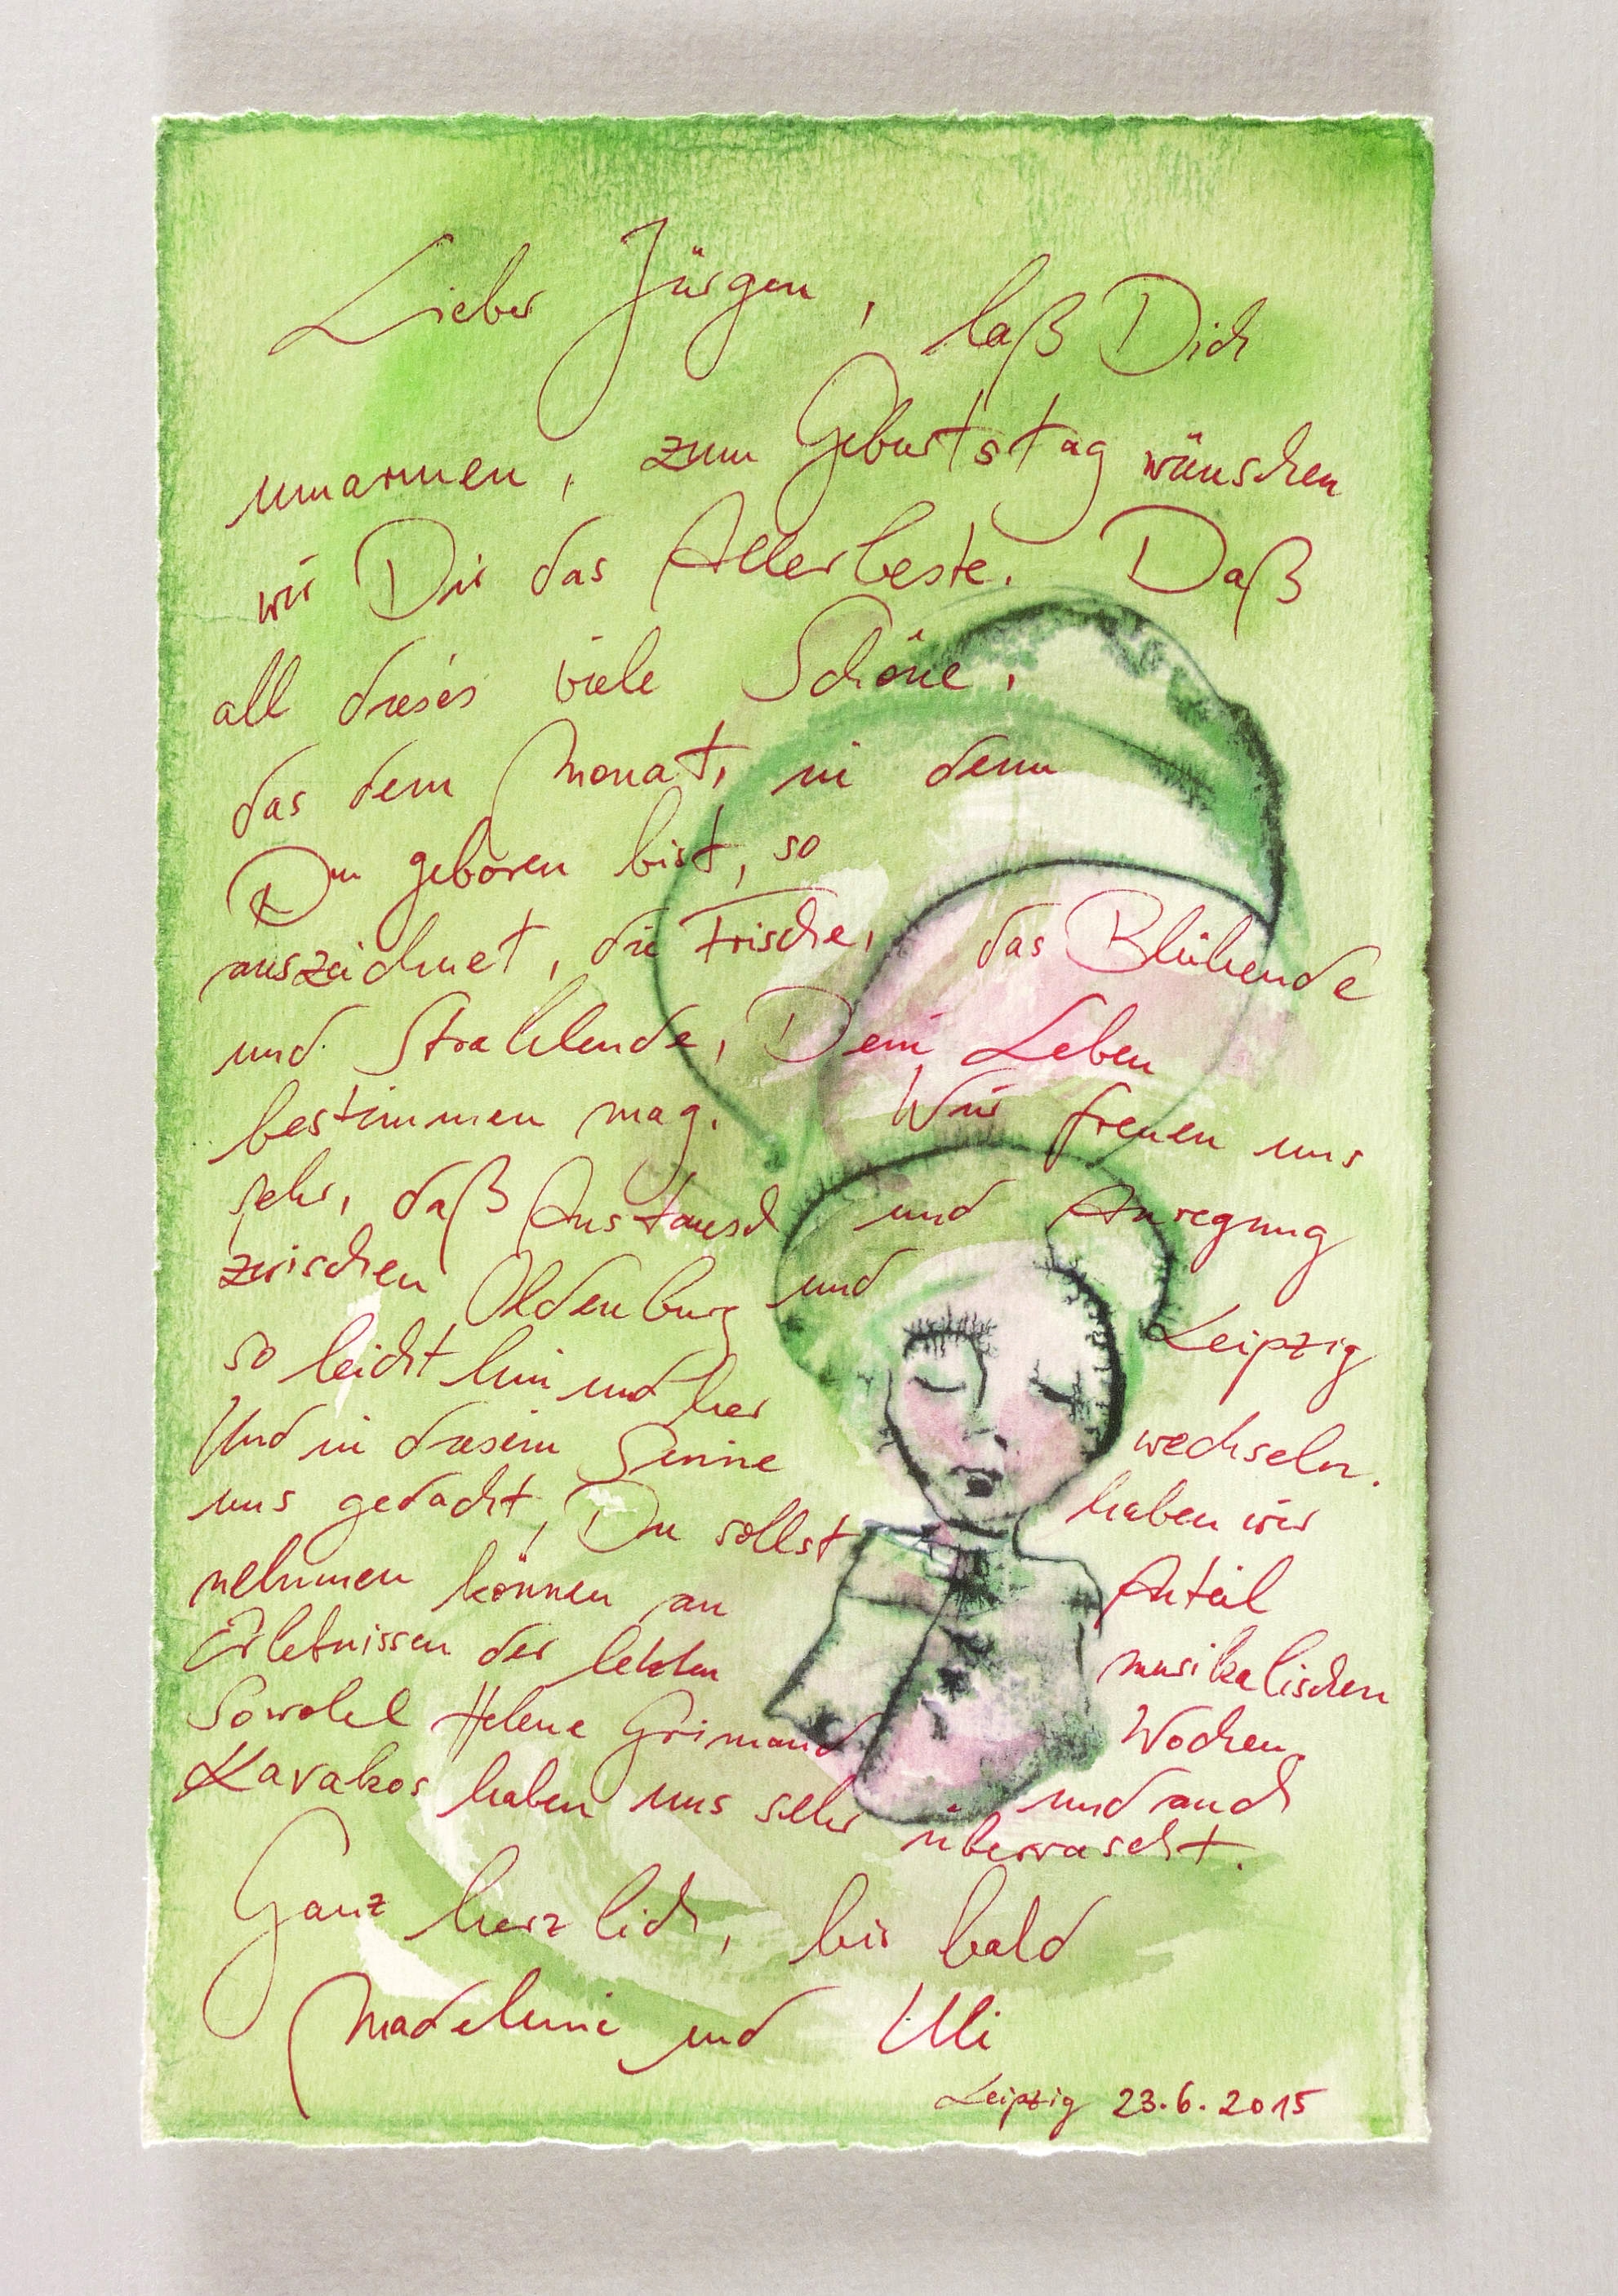 Lieber Jürgen, laß Dich
umarmen, zum Geburtstag wünschen
wir Dir das Allerbeste. Daß
all dieses viele Schöne,
das dem Monat, in dem
Du geboren bist, so
auszeichnet, die Frische, das Blühende
und Strahlende, Dein Leben
bestimmen mag. Wir freuen uns
sehr, daß Austausch und Anregung
zwischen Oldenburg und Leipzig
so leicht hin und her wechseln.
Und in diesem Sinne haben wir
uns gedacht, Du sollst Anteil
nehmen können an musikalischen
Erlebnissen der letzten Wochen.
Sowohl Helene Grimaud und auch
Kavakos haben uns sehr überrascht.
Ganz herzlich, bis bald
Madeleine und Uli
Leipzig 23.6.2015